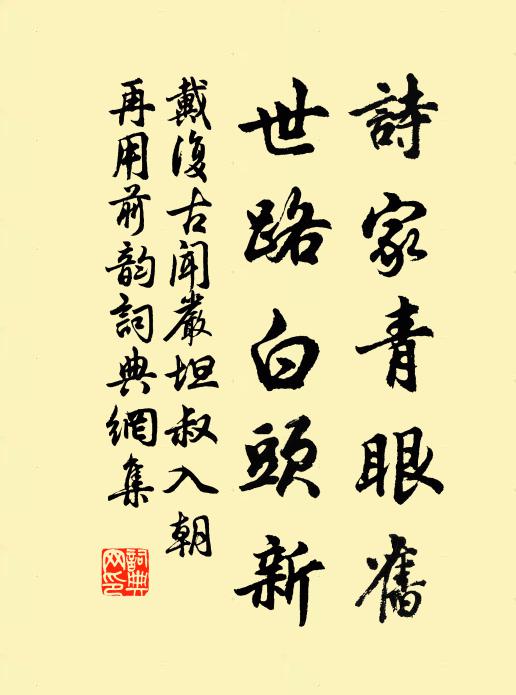 詩家青眼舊
世路白頭新
戴復古聞嚴坦叔入朝
再用前韵詞典網集
詞典
网印